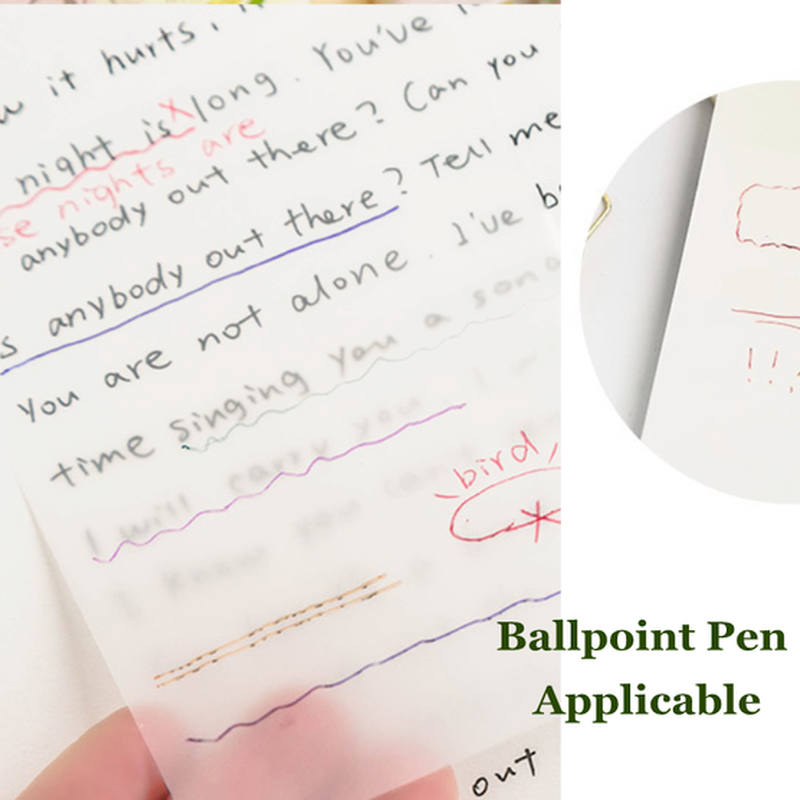 it hurts,
night is long. You've
se nights are
anybody out there? Can you
s anybody out there? Tell me
You are not alone. I've b
time singing you a song
I will carry you
I know you
bird
out
!!
Ballpoint Pen
Applicable